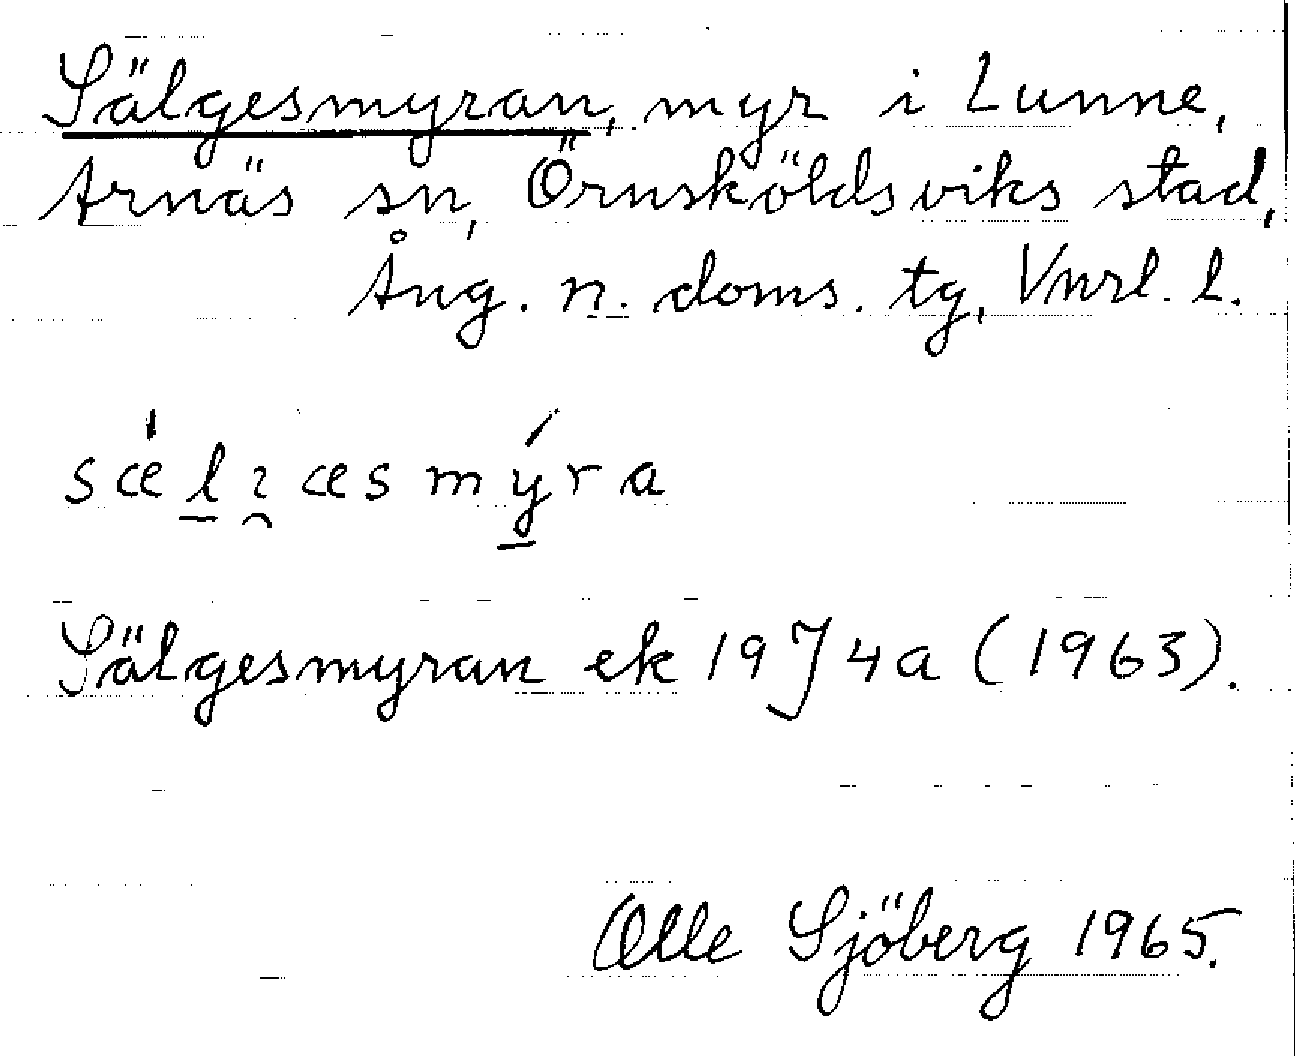 Sälgesmyran, myr i Lunne,
Arnäs sn, Örnsköldsviks stad,
Ång. n. doms. tg, Vnrl. l.
sælɿæsmýra
Sälgesmyran ek 19J4a (1963).
Olle Sjöberg 1965.